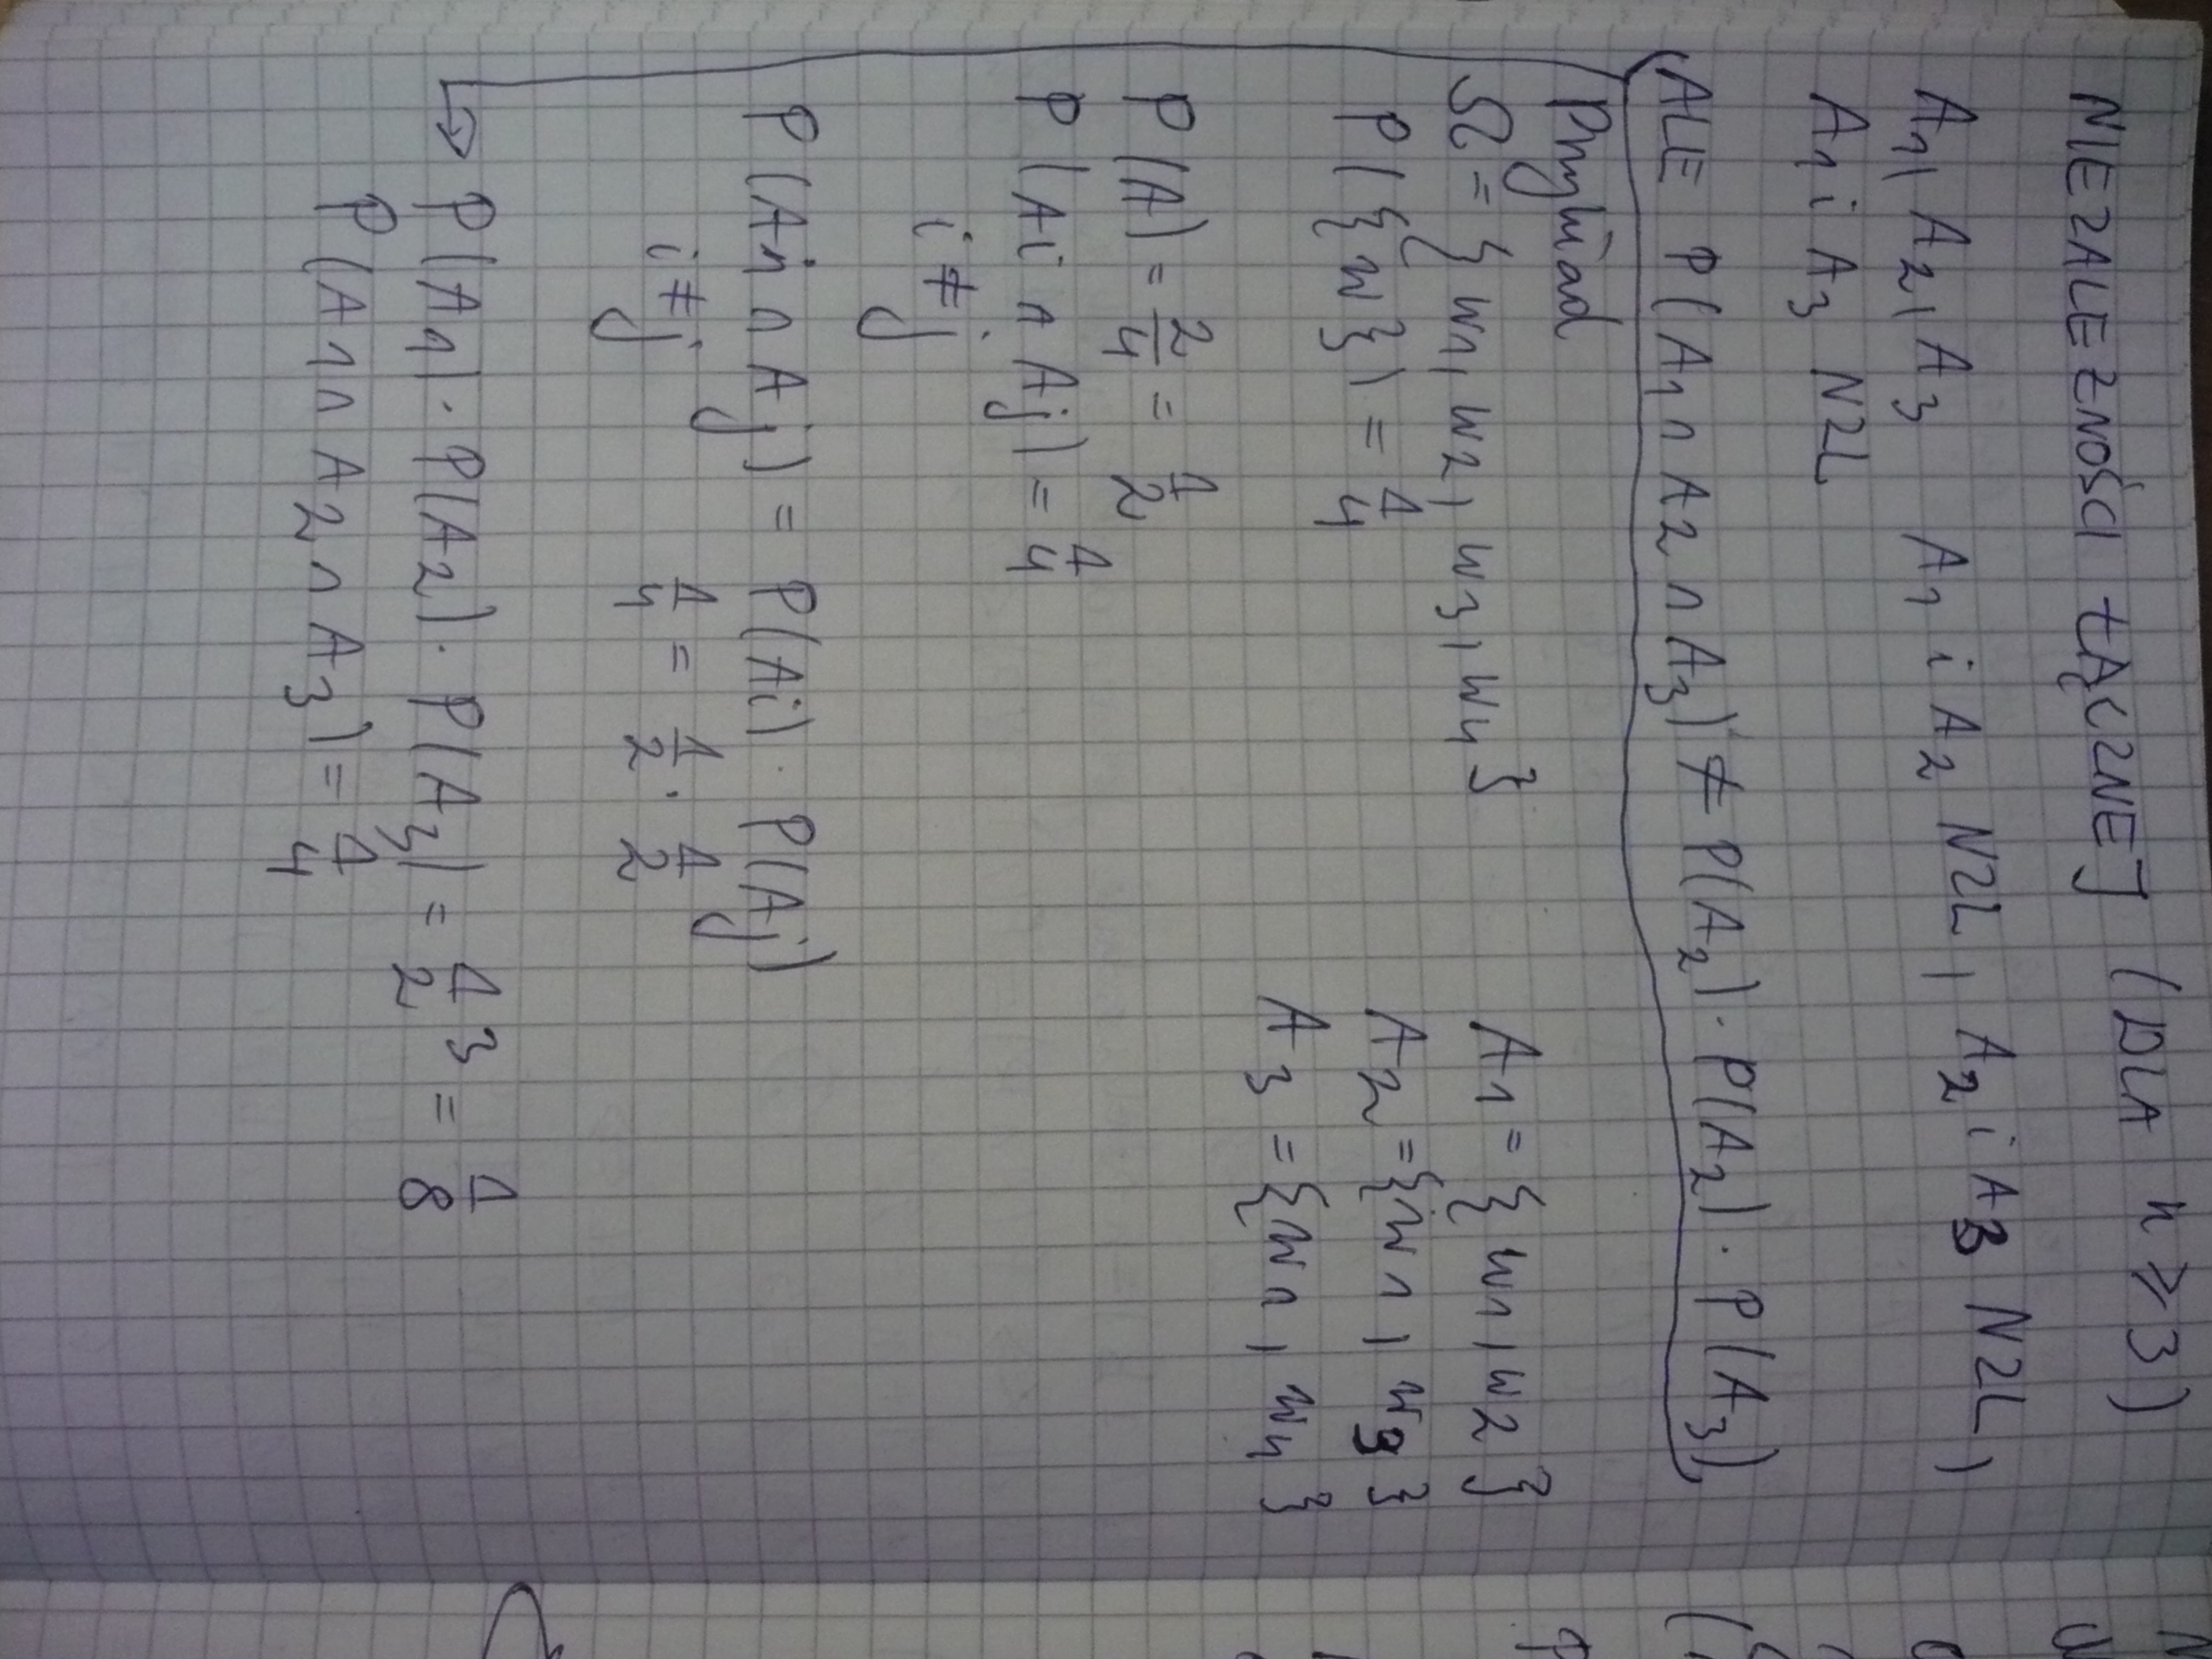 NIEZALEŻNOŚCI ŁĄCZNEJ (DLA n ≥ 3)
A1, A2, A3 A1 i A2 NZL, A2 i A3 NZL,
A1 i A3 NZL
ALE P(A1 ∩ A2 ∩ A3) ≠ P(A2) · P(A2) · P(A3)
Przykład
Ω = { w1, w2, w3, w4 } A1 = { w1, w2 }
P({w}) = 1/4 A2 = { w1, w3 }
A3 = { w1, w4 }
P(A) = 2/4 = 1/2
P(Ai ∩ Aj) = 1/4
i ≠ j
P(Ai ∩ Aj) = P(Ai) · P(Aj)
i ≠ j 1/4 = 1/2 · 1/2
↳ P(A1) · P(A2) · P(A3) = 1/2 3 = 1/8
P(A1 ∩ A2 ∩ A3) = 1/4